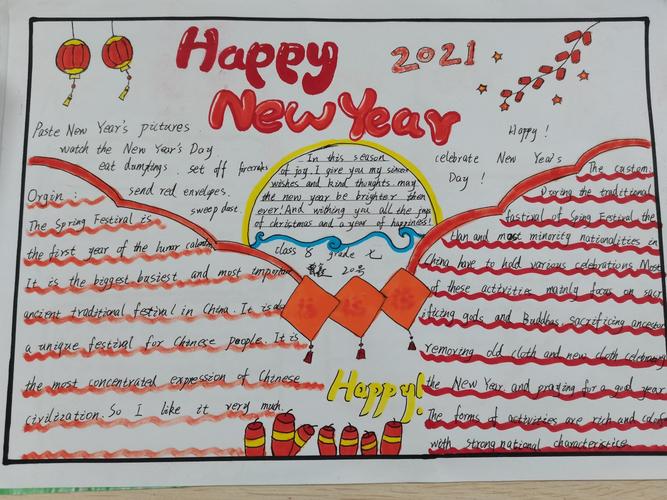 Happy
New Year
2021
Paste New Year's pictures
watch the New Year's Day
eat dumplings. set off
send red envelopes.
sweep dust.
Happy!
celebrate New Year's
Day!
In this season
of joy. I give you my sincer
wishes and kind thoughts. may
the new year be brighter than
ever! And wishing you all the joys
of christmas and a year of happiness!
class 8 grade 七
20号
福 福 福
Happy!
Orgin:
The Spring Festival is
the first year of the lunar calendar
It is the biggest, busiest and most important
ancient traditional festival in China. It is also
a unique festival for Chinese people. It is
the most concentrated expression of Chinese
civilization. So I like it very much.
The custom:
During the traditional
festival of Sping Festival the
Han and most minority nationalities in
China have to hold various celebrations. Most
of these activities mainly focus on sacr
ificing gods and Buddhas, sacrificing ancestor
removing old cloth and new cloth celebrating
the New Year and praying for a good year
The forms of activities are rich and
with strong national characteristics